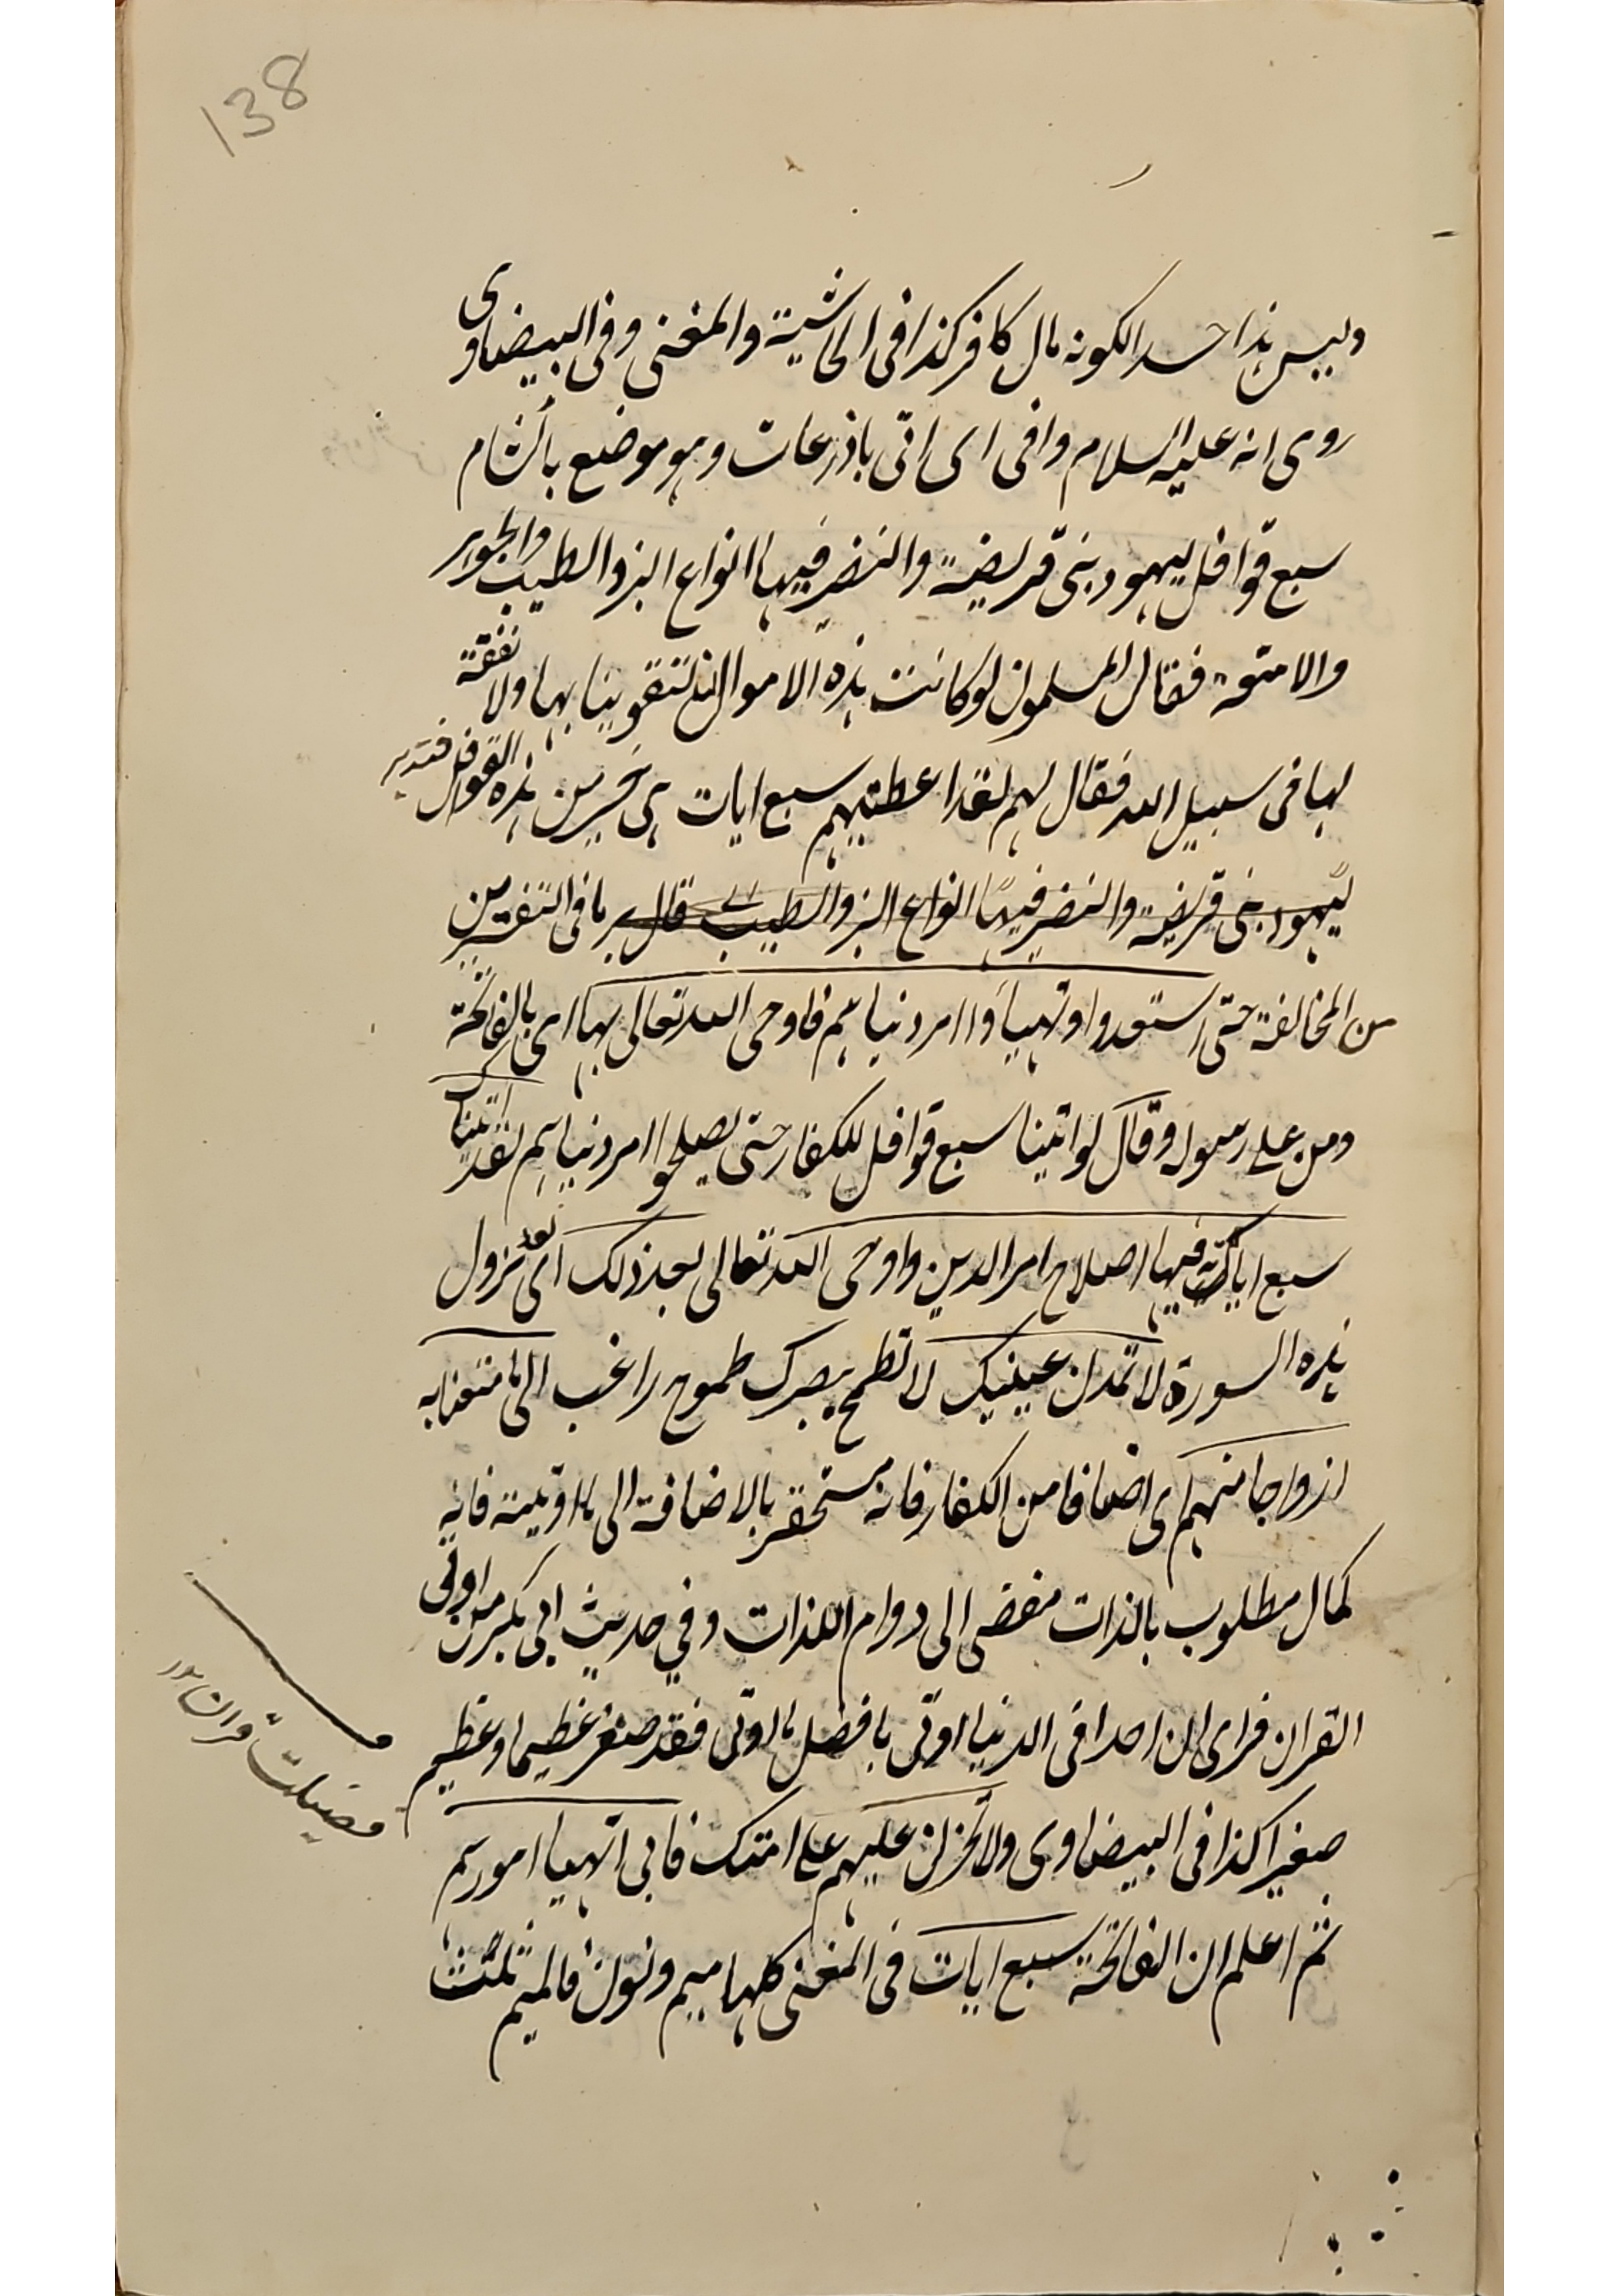 138
وليس هذا حسدا لكونه مال كافر كذا فى الحاشية والمغنى وفى البيضاوى
روى انه عليه السلام وافى اى اتى باذرعات وهو موضع بالشام
سبع قوافل ليهود بنى قريضة والنضر فيها انواع البز والطيب والجواهر
والامتعة فقال المسلمون لو كانت هذه الاموال لنا لتقوينا بها ولانفقنا
لها فى سبيل الله فقال لهم لقد اعطيتهم سبع ايات هى خير من هذه القوافل فتدبر
ليهود بنى قريضة والنضر فيها انواع البز والطيب قال ما فى التفسيرين
من المخالفة حتى استعدوا وتهيأوا امر دنياهم فاوحى الله تعالى بها اى بالفاتحة
ومن على رسوله وقال لو اتينا سبع قوافل للكفار حتى يصلحوا امر دنياهم لقد اتينا
سبع ايات فيها اصلاح امر الدين واوحى الله تعالى بعد ذلك اى بعد نزول
هذه السورة لا تمدن عينيك لا تطمح ببصرك طموح راغب الى ما متعنا به
ازواجا منهم اى اصنافا من الكفار فانه مستحقر بالاضافة الى ما اوتيته فانه
كمال مطلوب بالذات مفضى الى دوام اللذات وفي حديث ابى بكر من اوتى
القران فراى ان احدا فى الدنيا اوتى بافضل ما اوتى فقد صغر عظيما وعظيم
صغيرا كذا فى البيضاوى ولا تحزن عليهم على امتك فانى اتهيا امورهم
ثم اعلم ان الفاتحة سبع ايات فى المغنى كلها ميم ونون فالميم ثلثت
فضيلت قران ١٢